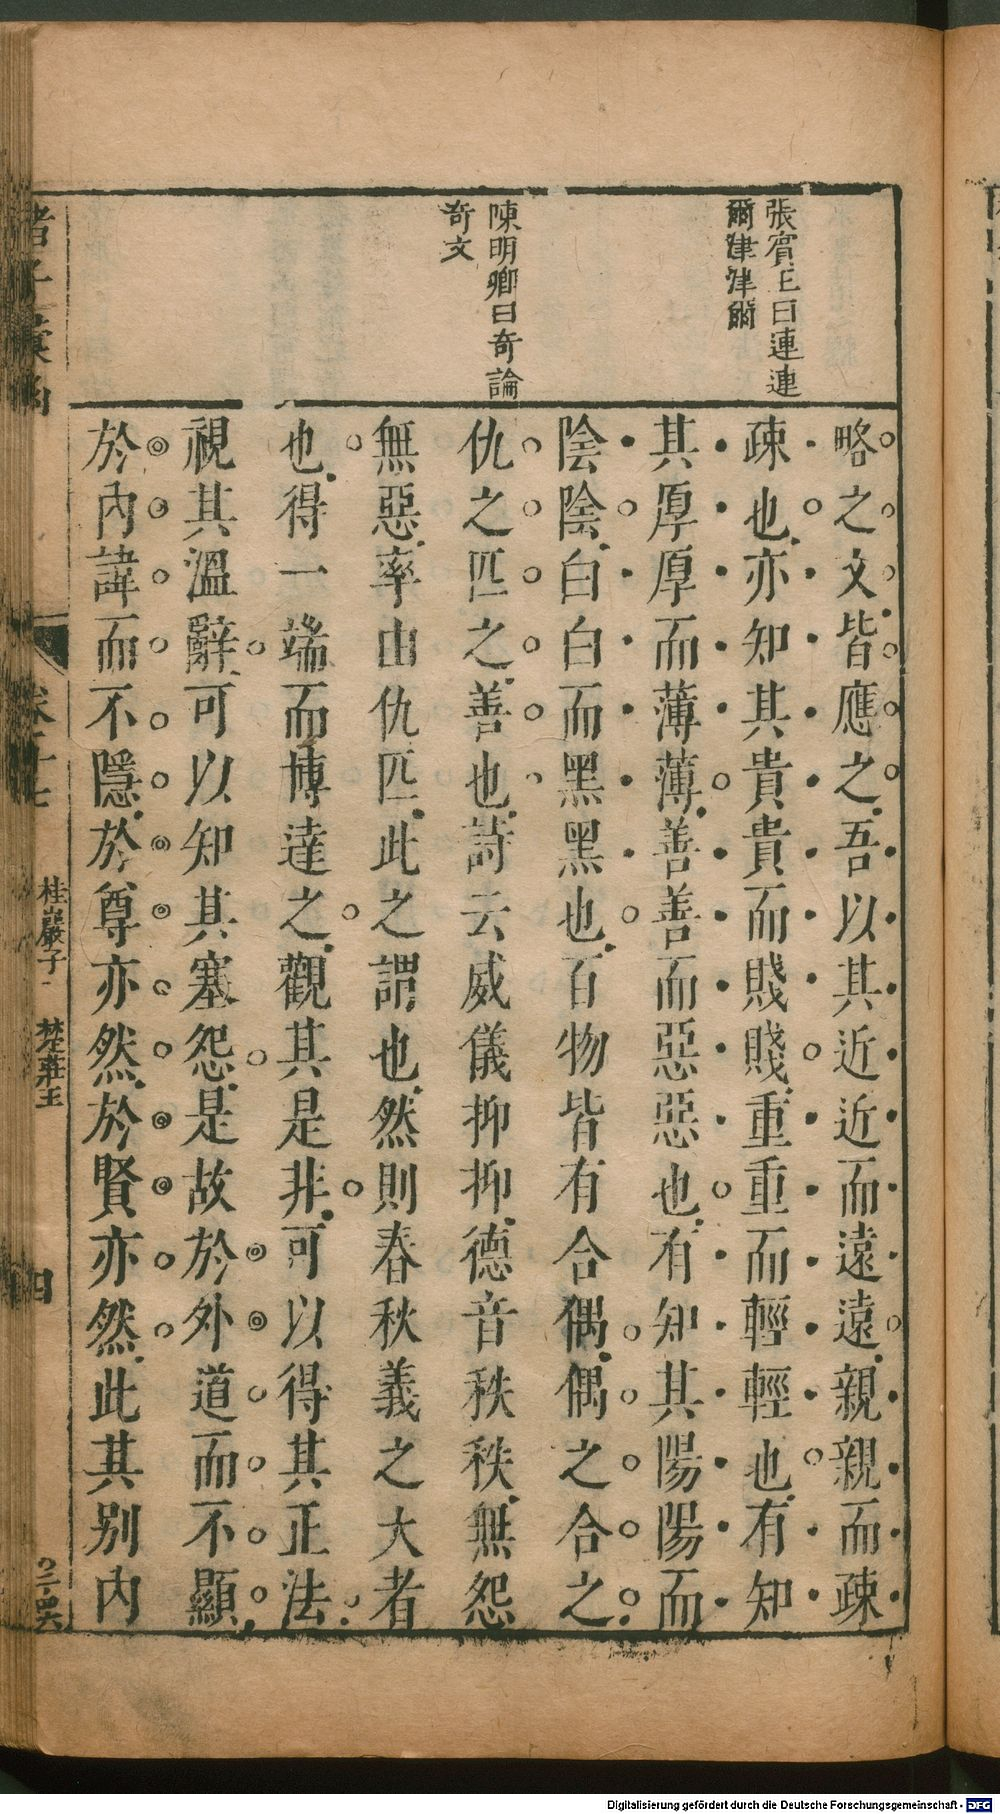 張賓王曰連連
爾津津爾
陳明卿曰奇論
奇文
略之文皆應之吾以其近近而遠遠親親而疎
疎也亦知其貴貴而賤賤重重而輕輕也有知
其厚厚而薄薄善善而惡惡也有知其陽陽而
陰陰白白而黑黑也百物皆有合偶偶之合之
仇之匹之善也詩云威儀抑抑德音秩秩無怨
無惡率由仇匹此之謂也然則春秋義之大者
也得一端而博達之觀其是非可以得其正法
視其溫辭可以知其塞怨是故於外道而不顯
於內諱而不隱於尊亦然於賢亦然此其別內
諸子彙函
卷十七
桂巖子
楚莊王
四
Digitalisierung gefördert durch die Deutsche Forschungsgemeinschaft - DFG